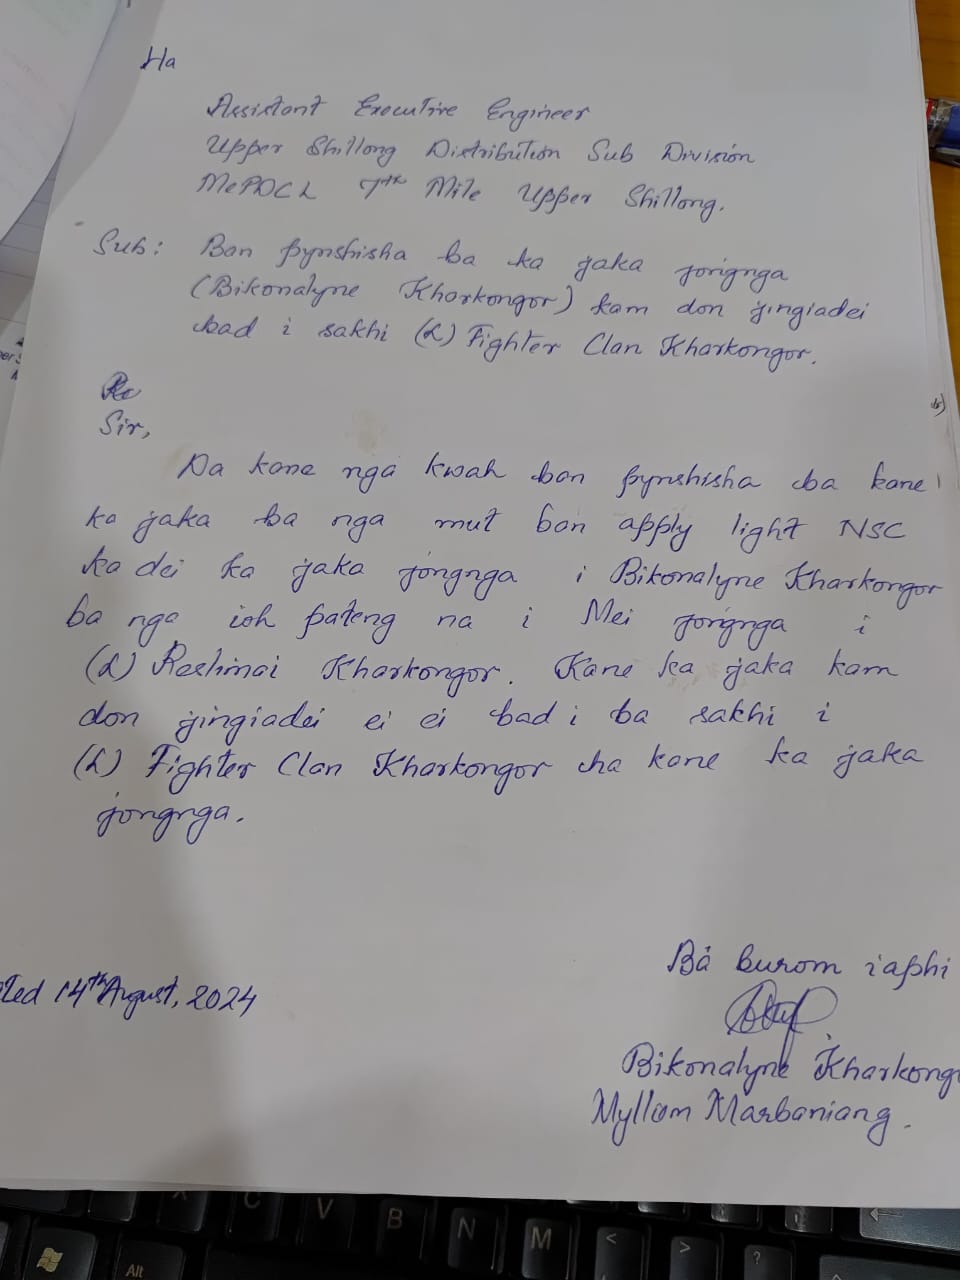 Ha
Assistant Executive Engineer
Upper Shillong Distribution Sub Division
MePDCL 7th Mile Upper Shillong.
Sub: Ban pynshisha ba ka jaka jongnga
(Bikonalyne Kharkongor) kam don jingiadei
bad i sakhi (L) Fighter Clan Kharkongor.
Sir,
Da kane nga kwah ban pynshisha ba kane
ka jaka ba nga mut ban apply light NSC
ka dei ka jaka jongnga i Bikonalyne Kharkongor
ba nga ioh pateng na i Mei jongnga i
(L) Reshinai Kharkongor. Kane ka jaka kam
don jingiadei ei ei bad i ba sakhi i
(L) Fighter Clan Kharkongor ha kane ka jaka
jongnga.
Ba burom iaphi
14th August, 2024
Bikonalyne Kharkong
Mylliem Marbaniang.